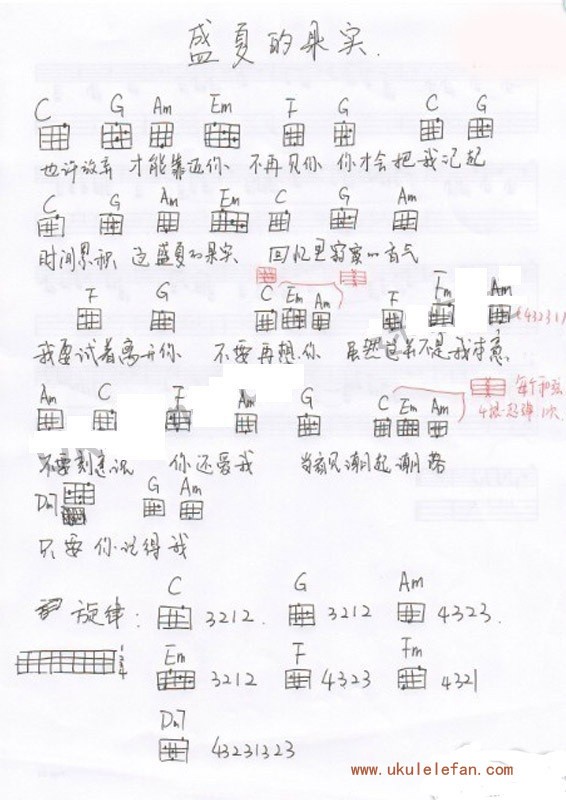 盛夏的果实.
C G Am Em F G C G
也许放弃 才能靠近你 不再见你 你才会把我记起
C G Am Em C G Am
时间累积 这盛夏的果实 回忆里寂寞的香气
F G C Em Am F Am
我要试着离开你 不要再想你 虽然这并不是我本意
Am C F Am G C Em Am
每个和弦
不要刻意说 你还爱我 潮起潮
Dm7 G Am
只要你记得我
旋律: C 3212. G 3212 Am 4323.
Em 3212 F 4323 Fm 4321
Dm7 43231323
www.ukulelefan.com